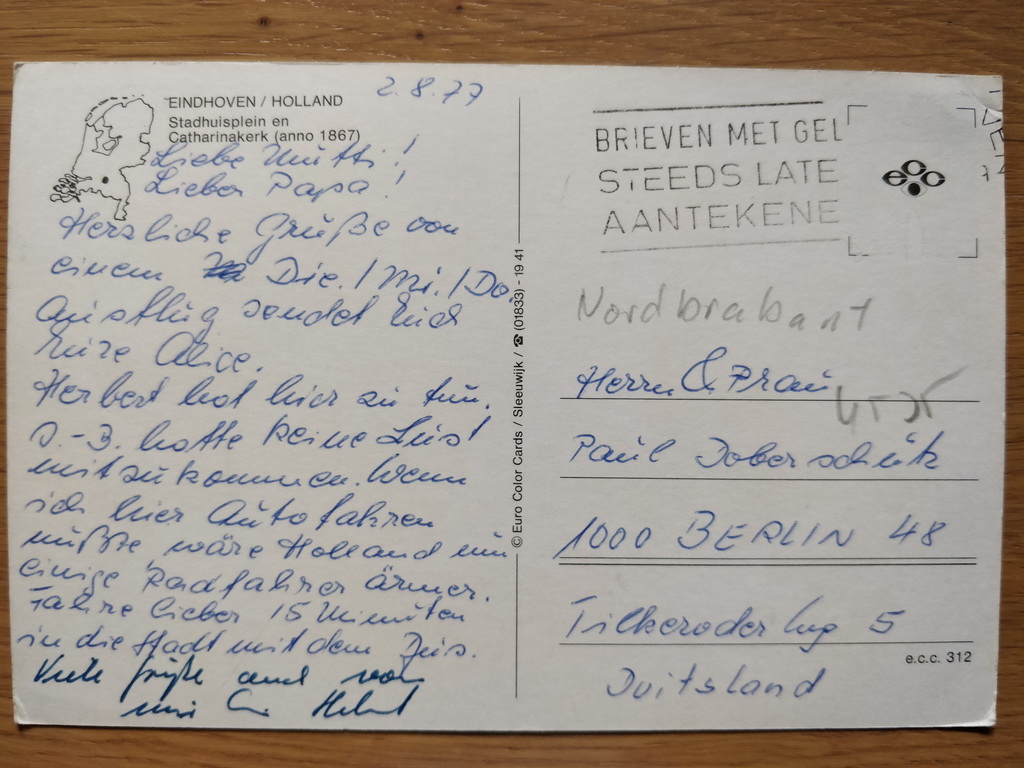 2.8.77
EINDHOVEN / HOLLAND
Stadhuisplein en
Catharinakerk (anno 1867)
Liebe Mutti!
Lieber Papa!
Herzliche Grüße von
einem Die. / Mi. / Do
Ausflug sendet Euch
Eure Alice.
Herbert hat hier zu tun.
J.-B. hatte keine Lust
mitzukommen. Wenn
ich hier Autofahren
müßte, wäre Holland um
einige Radfahrer ärmer.
Fahre lieber 15 Minuten
in die Stadt mit dem Bus.
Viele Grüße auch von
Herbert
© Euro Color Cards / Sleeuwijk / ☎ (01833) - 19 41
BRIEVEN MET GEL
STEEDS LATE
AANTEKENE
ecc
Nordbrabant
Herrn & Frau
Paul Doberschütz
1000 BERLIN 48
Tilkeroder Weg 5
e.c.c. 312
Duitsland